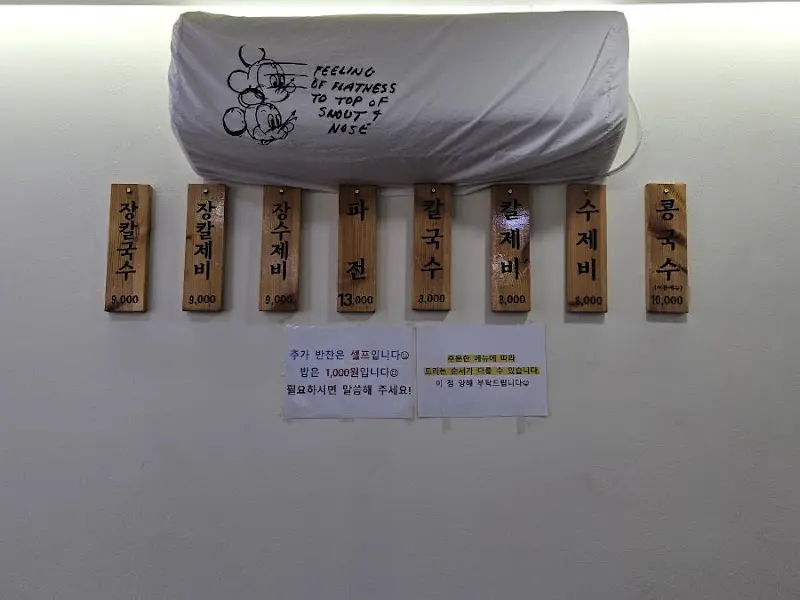 FEELING
OF FLATNESS
TO TOP OF
SNOUT &
NOSE
장칼국수
9,000
장칼제비
9,000
장수제비
9,000
파전
13,000
칼국수
8,000
칼제비
8,000
수제비
8,000
콩국수
(여름메뉴)
10,000
추가 반찬은 셀프입니다☺
밥은 1,000원입니다☺
필요하시면 말씀해 주세요!
주문한 메뉴에 따라
드리는 순서가 다를 수 있습니다.
이 점 양해 부탁드립니다☺